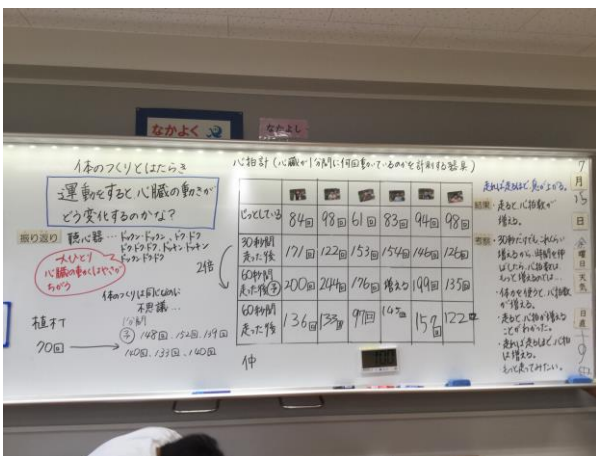 なかよく
なかよし
体のつくりとはたらき
運動をすると、心臓の動きが
どう変化するのかな?
振り返り
聴心器…ドックン・ドックン、ドクドク
ドクドクドク、ドッキンドッキン
ドックンドクドク
一人ひとり
心臓の動くはやさが
ちがう
体のつくりは同じなのに
不思議…
植村T
70回
1分間
148回、152回、139回
140回、133回、140回
2倍
心拍計(心臓が1分間に何回動いているのかを計測する器具)
じっとしている 84回 98回 61回 83回 94回 98回
30秒間
走った後 171回 122回 153回 154回 146回 126回
60秒間
走った後 200回 244回 176回 増える 199回 135回
60秒間
走った後 136回 133回 97回 147回 157回 122回
仲
走れば走るほど、息が上がる。
結果
・走ると心拍数が
増える。
考察
・30秒だけでもこれくらい
増えるから、時間を伸
ばしたら、心拍数は
もっと増えるのでは…
・体力を使うと、心拍数
が増える。
・走ると、心拍が増える
ことがわかった。
・走れば走るほど、心拍
は増える。
もっと走ってみたい。
7
月
15
日
金
曜
日
天
気
日
直